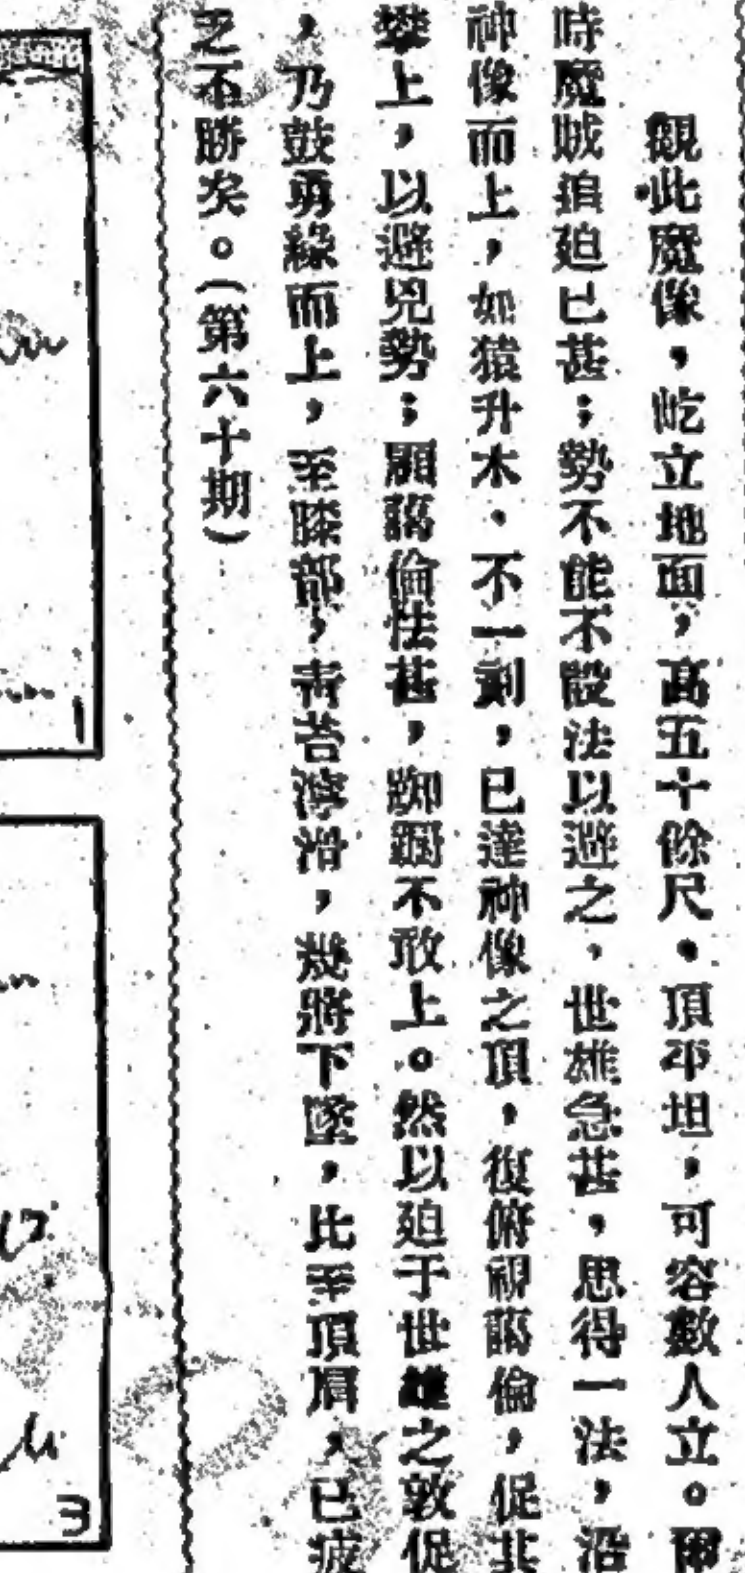 觀此魔像，屹立地面，高五十餘尺。頂平坦，可容數人立。爾
時魔賊追迫已甚；勢不能不設法以避之，世雄急甚，思得一法，沿
神像而上，如猿升木。不一刻，已達神像之頂，復俯視藹倫，促其
攀上，以避兇勢；顧藹倫怯甚，踟躕不敢上。然以迫于世雄之敦促
，乃鼓勇緣而上，至膝部，青苔滑，幾將下墜，比至頂肩，已疲
乏不勝矣。(第六十期)
1
3